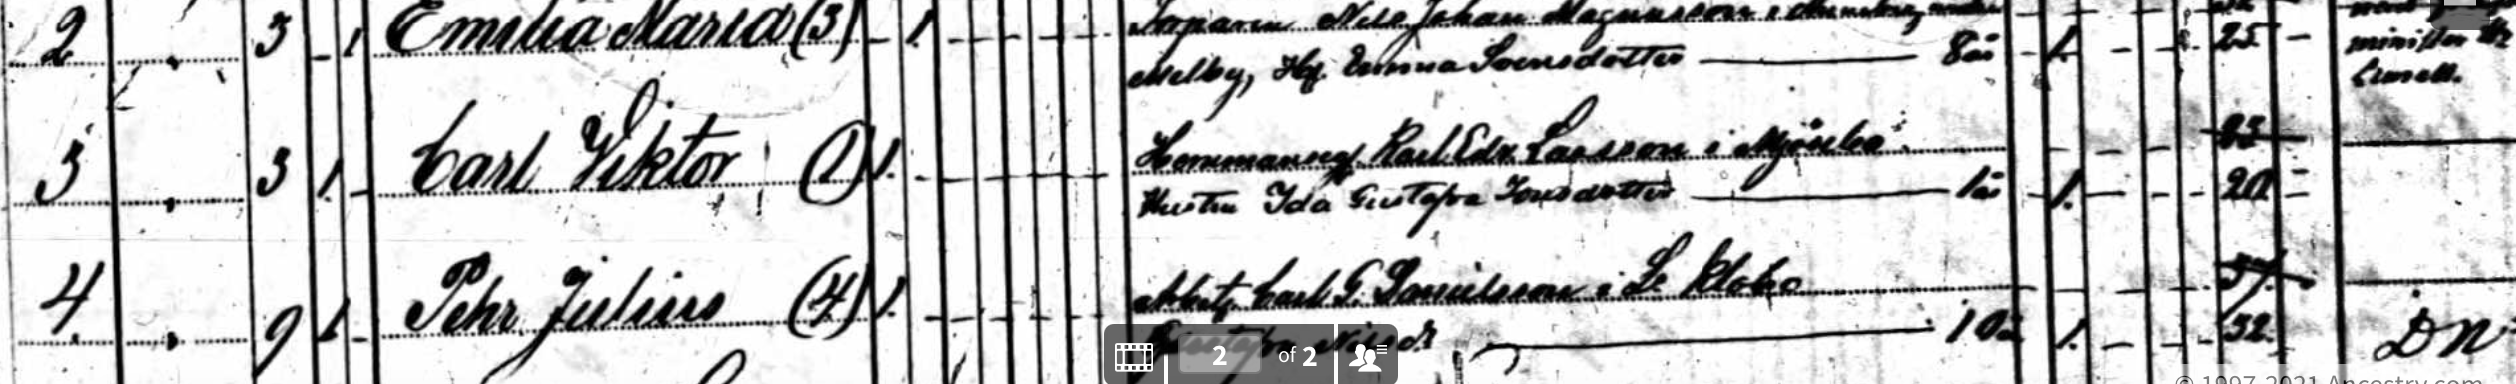 2 3 1 Emilia Maria (3) 1. Nils Johan Magnusson i
Melby, Hu. Emma Svensdotter 8 år 1. 25
minister
3 3 1. Carl Viktor (1) 1. Hemmanseg. Karl Edv. Larsson i Mjösebo
Hustru Ida Gustafva Jonsdotter 1 år 1. 20
4. 9 1 Pehr Julius (4) 1. Carl G. Danielsson i L. Klobo
Gustafva Nilsd. 10 år 1. 32. DN
2 of 2
© 1997-2021 Ancestry.com